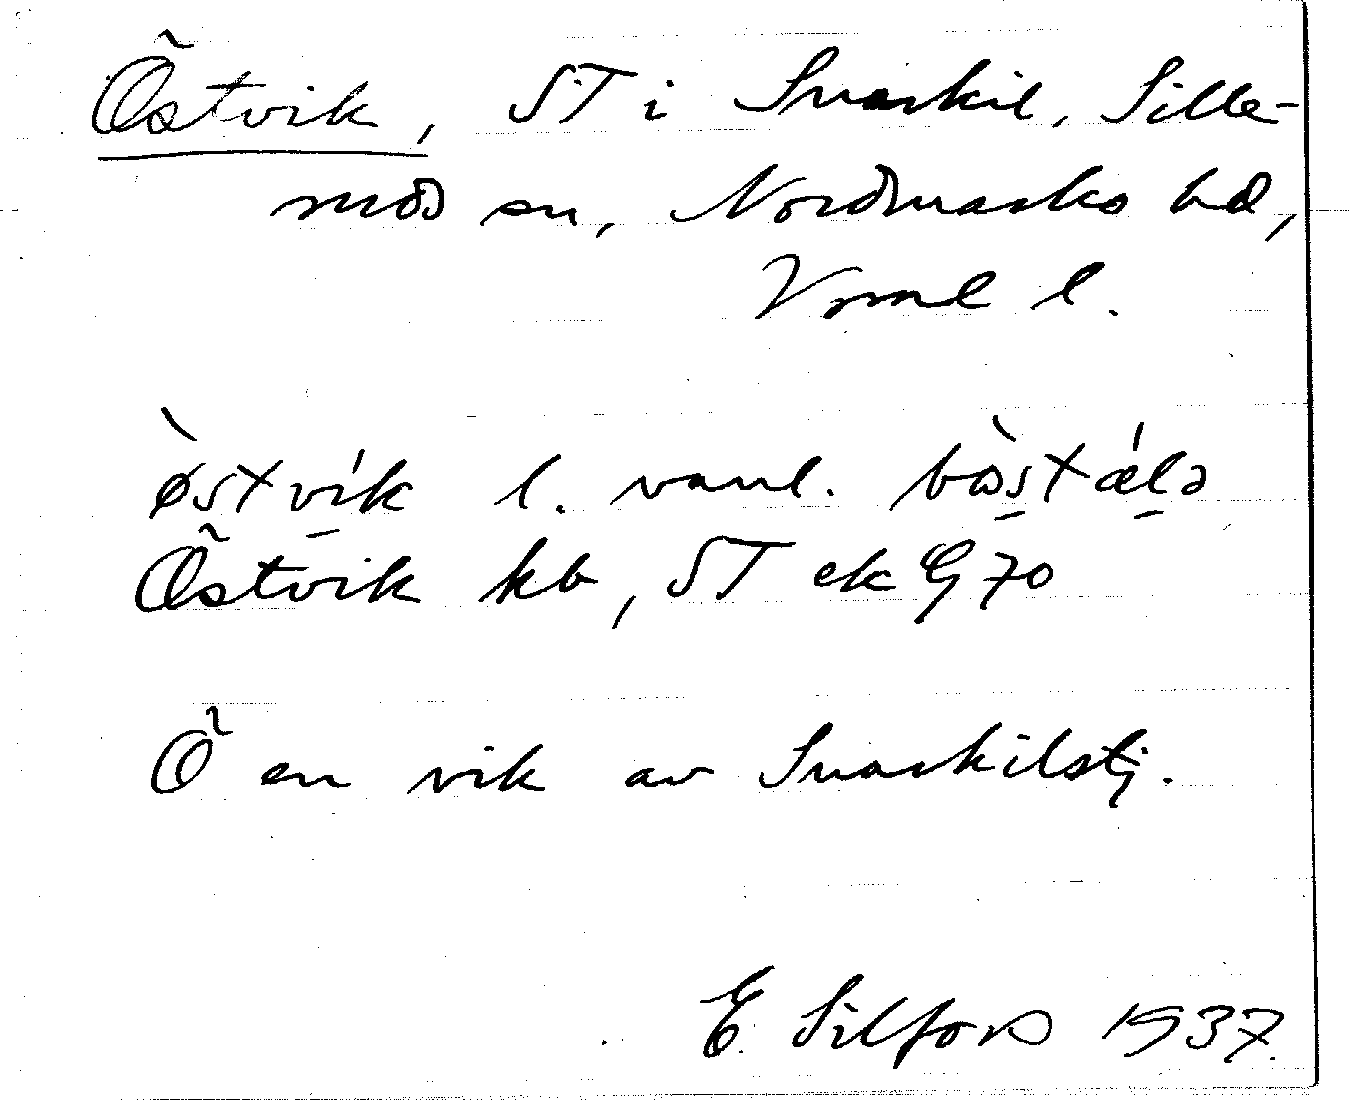 Östvik, ST i Svarkil, Sille-
rud sn, Nordmarks hd,
Vrml l.
òstvík l. vanl. bòstælə
Östvik kb, ST ek G 70
Ö en vik av Svarkilstj.
E Silfors 1937.